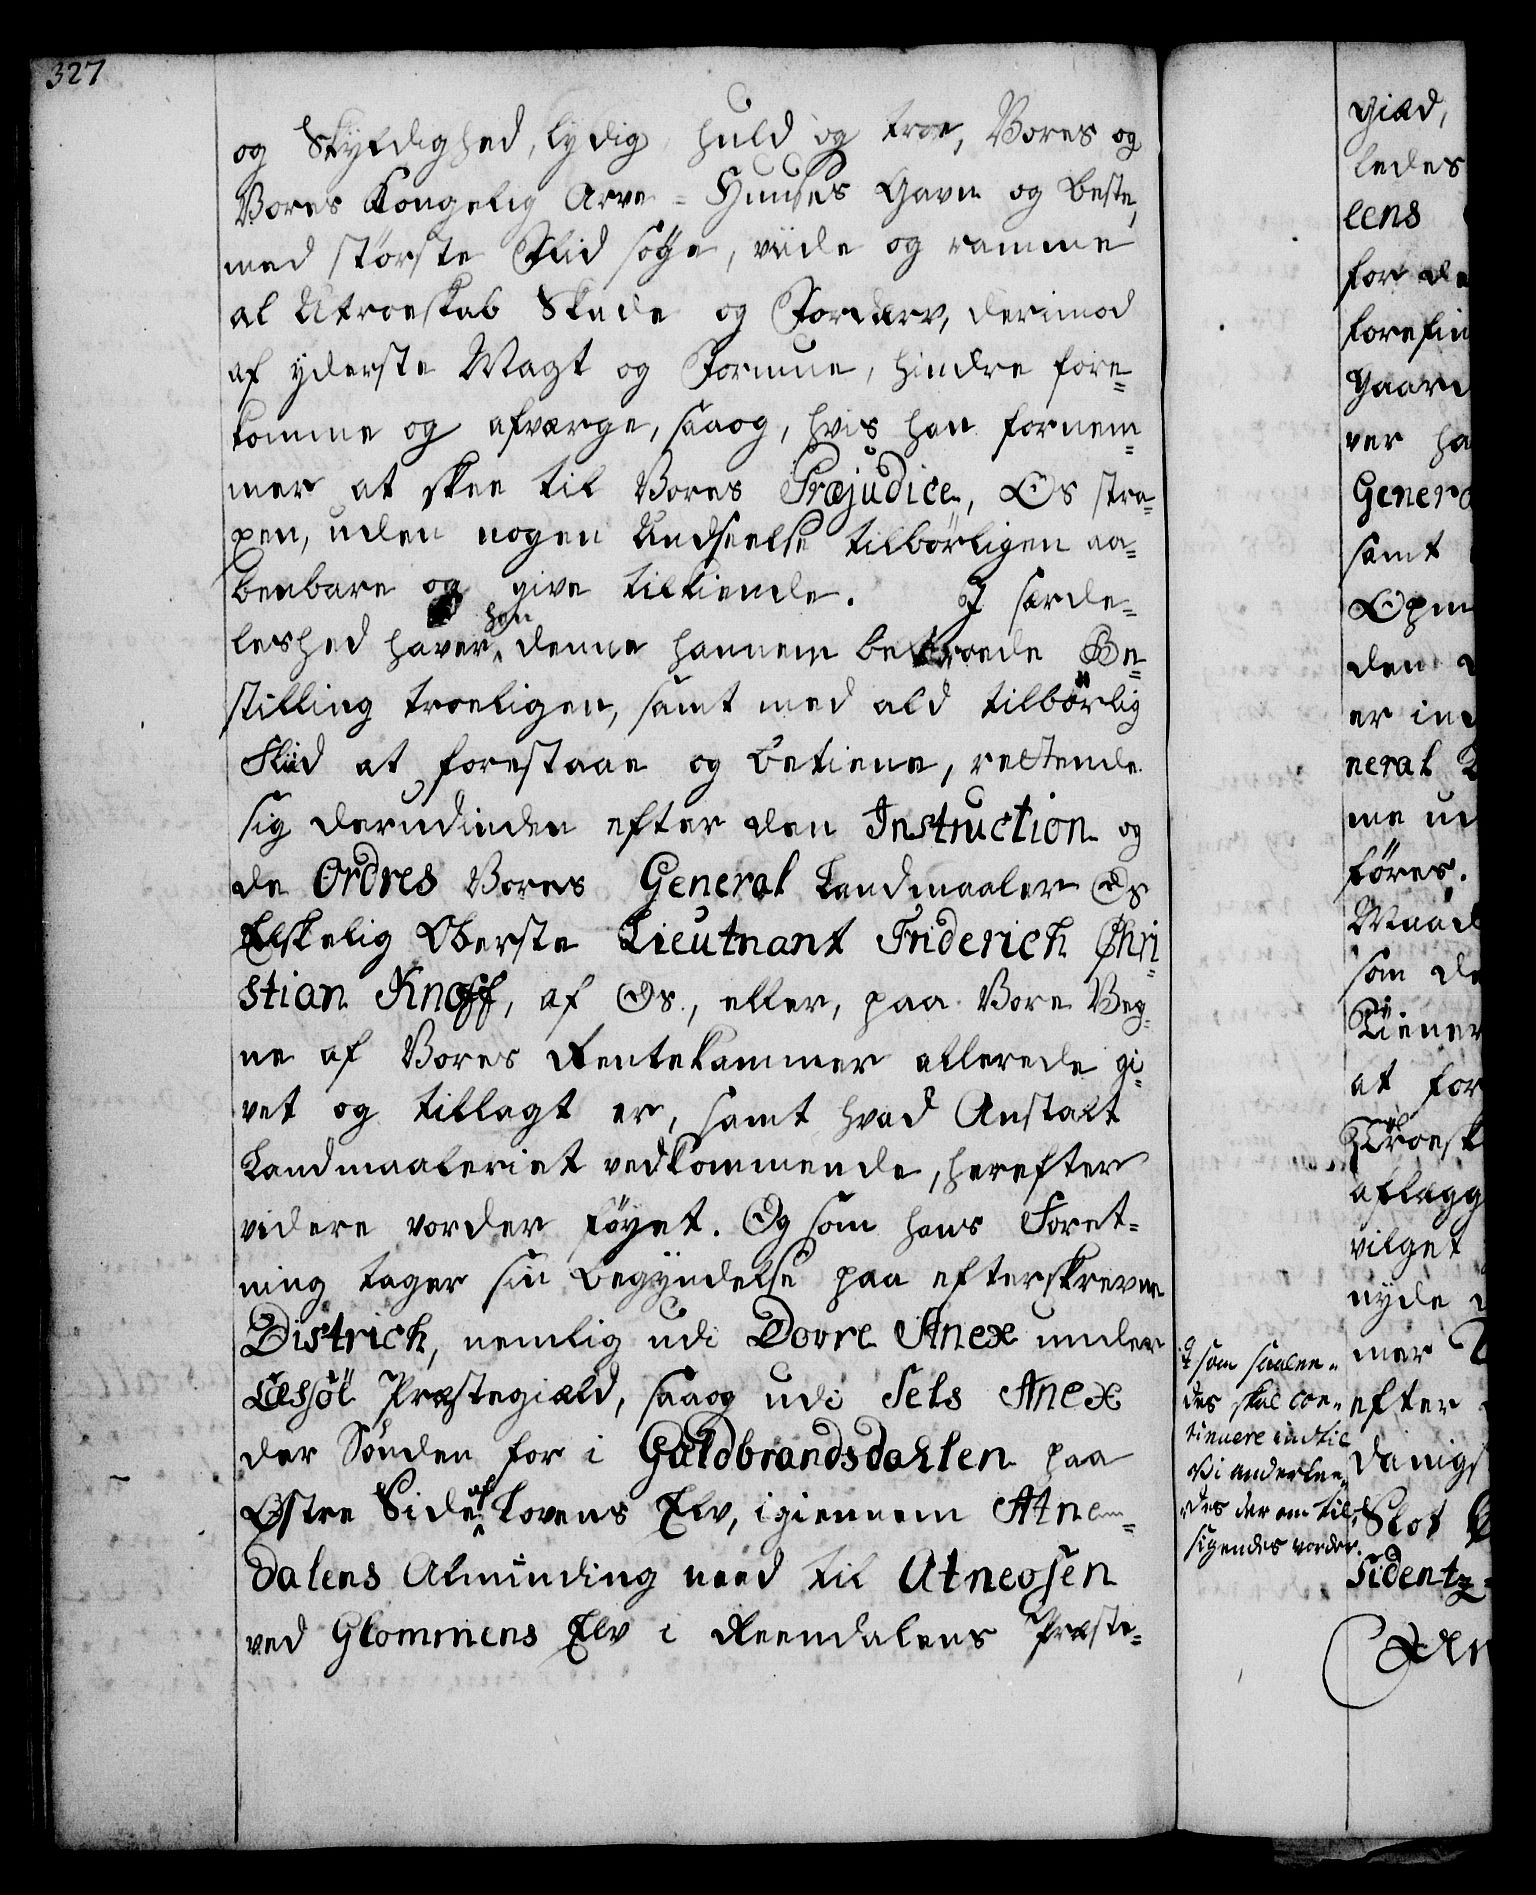 327
og Skyldighed, lydig huld og troe, Vores og
Vores Kongelig Arve-Huuses Gavn og beste,
med störste Fliid söge, viide og ramme
al Utroeskab Skade og Forderv, derimod
af yderste Magt og Formue, hindre fore=
komme og afværge, saaog, hvis han fornem=
mer at skee til Vores Præjudice, Os stra=
xen, uden nogen Undseelse tilbörligen aa=
benbare og give tilkiende. I særde=
leshed haver han denne hannem betroede Be=
stilling troeligen, samt med ald tilbörlig
Fliid at forestaae og betiene, rettende
sig derudinden efter den Instruction og
de Ordres Vores General Landmaaler Os
Elskelig Oberste Lieutnant Friderich Chri=
stian Knoff, af Os, eller, paa Vore Veg=
ne af Vores Rentekammer allerede gi=
vet og tillagt er, samt hvad Anstalt
Landmaaleriet vedkommende, herefter
videre vorder föyet. Og som hans Foret=
ning tager sin begyndelse paa efterskrevne
District, nemlig udi Dovre Anex under
Lessöe Præstegiæld, saaog udi Sels Anex
der Sönden for i Guldbrandsdahlen paa
Østre Side af Lovens Elv, igiennem Atne=
dalens Alminding need til Atneosen
ved Glommens Elv i Reendalens Præste=
som saalee=
des skal con=
tinuere indtil
Vi anderlee=
des der om til=
sigendes vorder.
giæld,
ledes
eens
for de
forefin
Gaar
ver ha
Genera
samt
Opm
den
er in
neral
me ud
föres.
Maad
som de
Tiener
at for
Troesk
aflægg
vilget
nyde
mer
efter
Danigs
Slot
Sidentz=